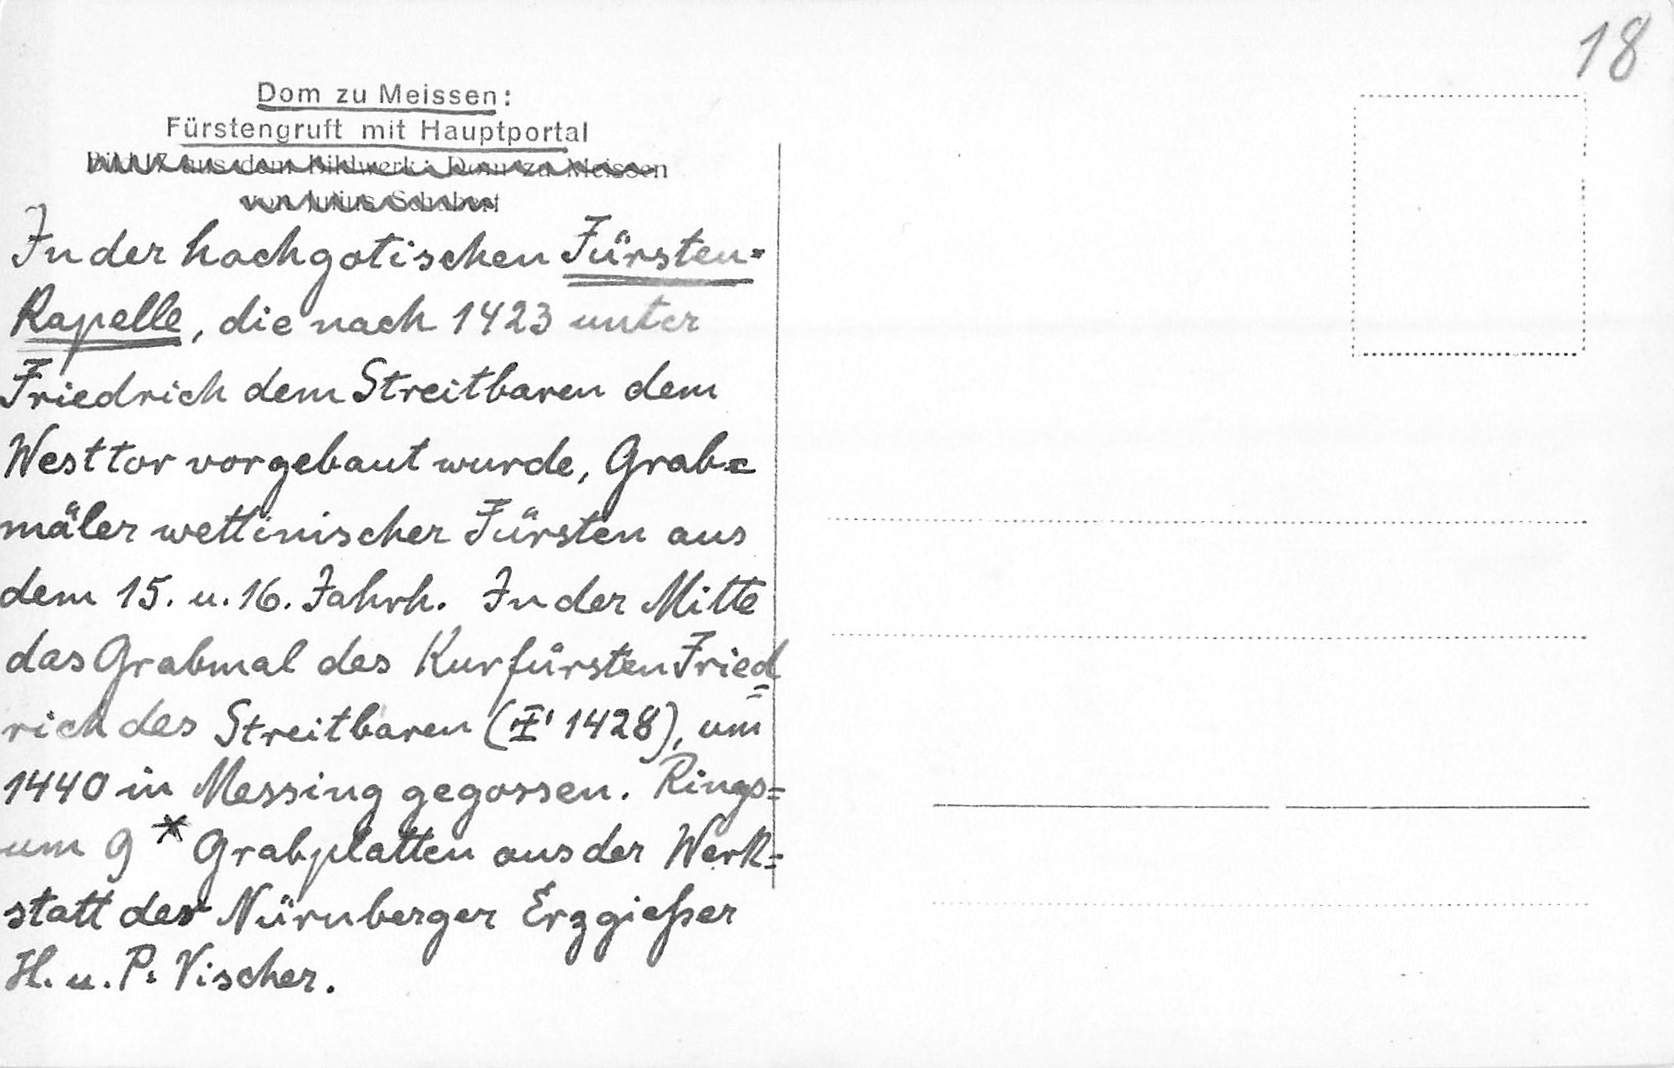 18
Dom zu Meissen:
Fürstengruft mit Hauptportal
aus dem Bildwerk: Dom zu Meissen
von
In der hochgotischen Fürsten-
Kapelle, die nach 1423 unter
Friedrich dem Streitbaren dem
Westtor vorgebaut wurde, Grab=
mäler wettinischer Fürsten aus
dem 15. u. 16. Jahrh. In der Mitte
das Grabmal des Kurfürsten Fried=
rich des Streitbaren ( 1428), um
1440 in Messing gegossen. Rings=
um 9 * Grabplatten aus der Werk=
statt der Nürnberger Erzgießer
H. u. P. Vischer.